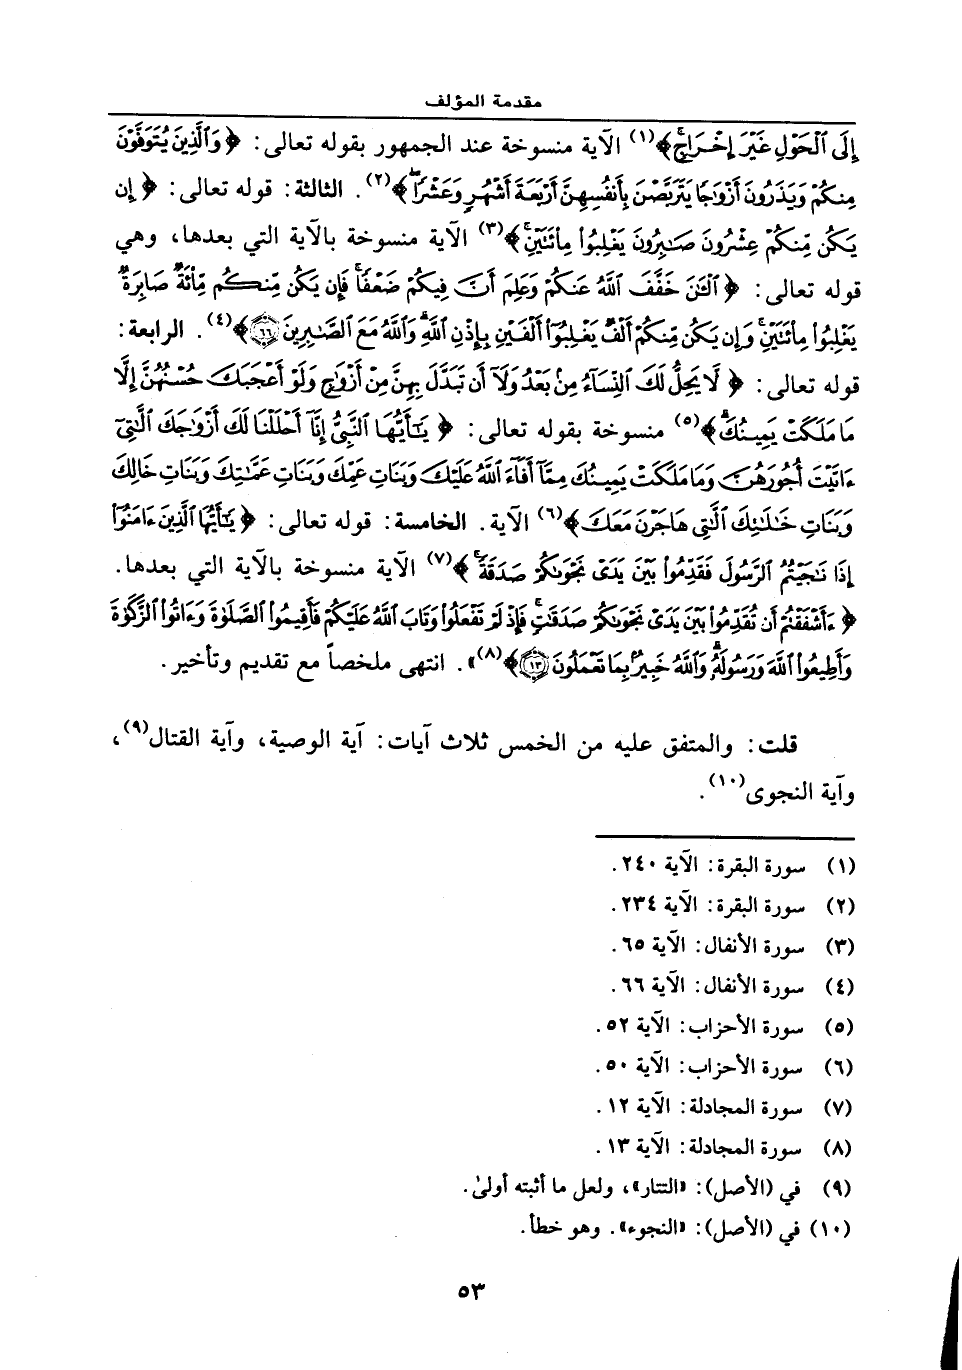 مقدمة المؤلف
إِلَى ٱلْحَوْلِ غَيْرَ إِخْرَاجٍ﴾(١) الآية منسوخة عند الجمهور بقوله تعالى: ﴿وَٱلَّذِينَ يُتَوَفَّوْنَ
مِنكُمْ وَيَذَرُونَ أَزْوَٰجًا يَتَرَبَّصْنَ بِأَنفُسِهِنَّ أَرْبَعَةَ أَشْهُرٍ وَعَشْرًا﴾(٢). الثالثة: قوله تعالى: ﴿إِن
يَكُن مِّنكُمْ عِشْرُونَ صَٰبِرُونَ يَغْلِبُوا۟ مِا۟ئَتَيْنِ﴾(٣) الآية منسوخة بالآية التي بعدها، وهي
قوله تعالى: ﴿ٱلْـَٰٔنَ خَفَّفَ ٱللَّهُ عَنكُمْ وَعَلِمَ أَنَّ فِيكُمْ ضَعْفًا فَإِن يَكُن مِّنكُم مِّا۟ئَةٌ صَابِرَةٌ
يَغْلِبُوا۟ مِا۟ئَتَيْنِ وَإِن يَكُن مِّنكُمْ أَلْفٌ يَغْلِبُوٓا۟ أَلْفَيْنِ بِإِذْنِ ٱللَّهِ وَٱللَّهُ مَعَ ٱلصَّٰبِرِينَ ٦٦﴾(٤). الرابعة:
قوله تعالى: ﴿لَّا يَحِلُّ لَكَ ٱلنِّسَآءُ مِنۢ بَعْدُ وَلَآ أَن تَبَدَّلَ بِهِنَّ مِنْ أَزْوَٰجٍ وَلَوْ أَعْجَبَكَ حُسْنُهُنَّ إِلَّا
مَا مَلَكَتْ يَمِينُكَ﴾(٥) منسوخة بقوله تعالى: ﴿يَٰٓأَيُّهَا ٱلنَّبِىُّ إِنَّآ أَحْلَلْنَا لَكَ أَزْوَٰجَكَ ٱلَّٰتِىٓ
ءَاتَيْتَ أُجُورَهُنَّ وَمَا مَلَكَتْ يَمِينُكَ مِمَّآ أَفَآءَ ٱللَّهُ عَلَيْكَ وَبَنَاتِ عَمِّكَ وَبَنَاتِ عَمَّٰتِكَ وَبَنَاتِ خَالِكَ
وَبَنَاتِ خَٰلَٰتِكَ ٱلَّٰتِى هَاجَرْنَ مَعَكَ﴾(٦) الآية. الخامسة: قوله تعالى: ﴿يَٰٓأَيُّهَا ٱلَّذِينَ ءَامَنُوٓا۟
إِذَا نَٰجَيْتُمُ ٱلرَّسُولَ فَقَدِّمُوا۟ بَيْنَ يَدَىْ نَجْوَىٰكُمْ صَدَقَةً﴾(٧) الآية منسوخة بالآية التي بعدها.
﴿ءَأَشْفَقْتُمْ أَن تُقَدِّمُوا۟ بَيْنَ يَدَىْ نَجْوَىٰكُمْ صَدَقَٰتٍ فَإِذْ لَمْ تَفْعَلُوا۟ وَتَابَ ٱللَّهُ عَلَيْكُمْ فَأَقِيمُوا۟ ٱلصَّلَوٰةَ وَءَاتُوا۟ ٱلزَّكَوٰةَ
وَأَطِيعُوا۟ ٱللَّهَ وَرَسُولَهُۥ وَٱللَّهُ خَبِيرٌۢ بِمَا تَعْمَلُونَ ١٣﴾(٨)». انتهى ملخصاً مع تقديم وتأخير.
قلت: والمتفق عليه من الخمس ثلاث آيات: آية الوصية، وآية القتال(٩)،
وآية النجوى(١٠).
(١) سورة البقرة: الآية ٢٤٠.
(٢) سورة البقرة: الآية ٢٣٤.
(٣) سورة الأنفال: الآية ٦٥.
(٤) سورة الأنفال: الآية ٦٦.
(٥) سورة الأحزاب: الآية ٥٢.
(٦) سورة الأحزاب: الآية ٥٠.
(٧) سورة المجادلة: الآية ١٢.
(٨) سورة المجادلة: الآية ١٣.
(٩) في (الأصل): «التتار»، ولعل ما أثبته أولىٰ.
(١٠) في (الأصل): «النجوء». وهو خطأ.
٥٣